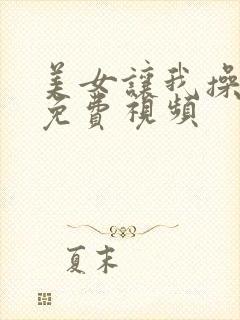 美女讓我操
免費視頻
夏末